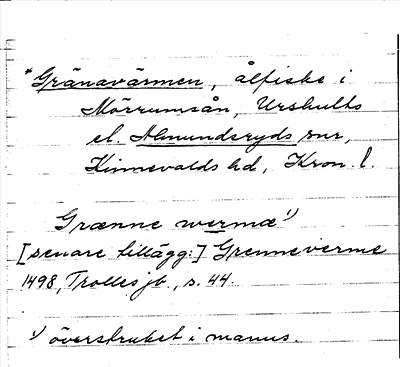 *Gränavärmen, ålfiske i
Mörrumsån, Urshults
el. Almundsryds snr,
Kinnevalds hd, Kron. l.
Grænne wermæ 1)
[senare tillägg:] Grenneverme
1498, Trolles jb., s. 44.
1) överstruket i manus.